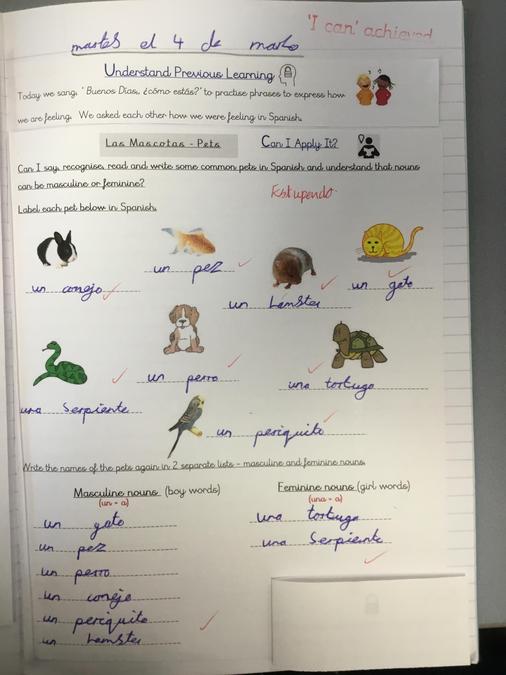 'I can' achieved
martes el 4 de marzo
Understand Previous Learning
Today we sang, 'Buenos Días, ¿cómo estás?' to practise phrases to express how
we are feeling. We asked each other how we were feeling in Spanish.
Las Mascotas - Pets Can I Apply It?
Can I say, recognise, read and write some common pets in Spanish and understand that nouns
can be masculine or feminine?
Estupendo
Label each pet below in Spanish.
un pez
un conejo
un gato
un hámster
un perro
una tortuga
una serpiente
un periquito
Write the names of the pets again in 2 separate lists - masculine and feminine nouns.
Masculine nouns (boy words)
(un = a)
un gato
un pez
un perro
un conejo
un periquito
un hamster
Feminine nouns (girl words)
(una = a)
una tortuga
una serpiente